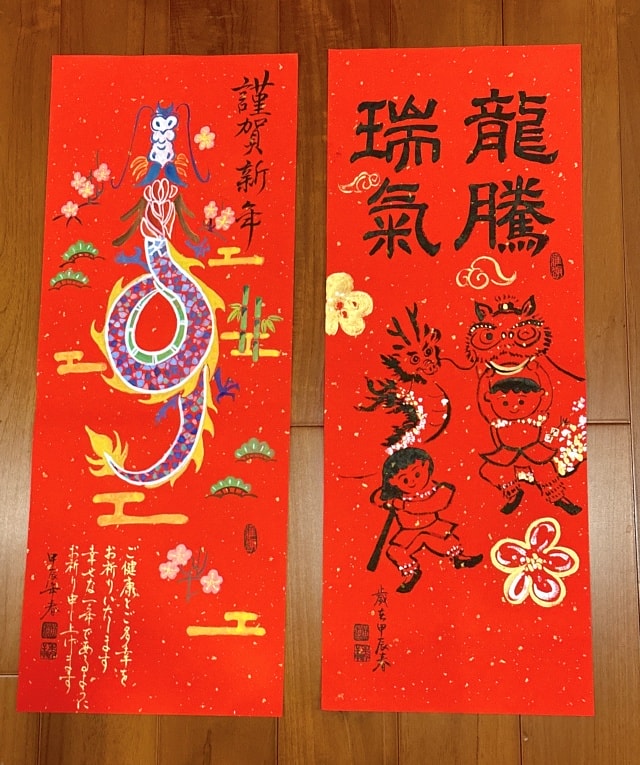 謹賀新年
ご健康とご多幸を
お祈りいたします
幸せな一年であるように
お祈り申し上げます
甲辰年春
龍騰
瑞氣
歲在甲辰春